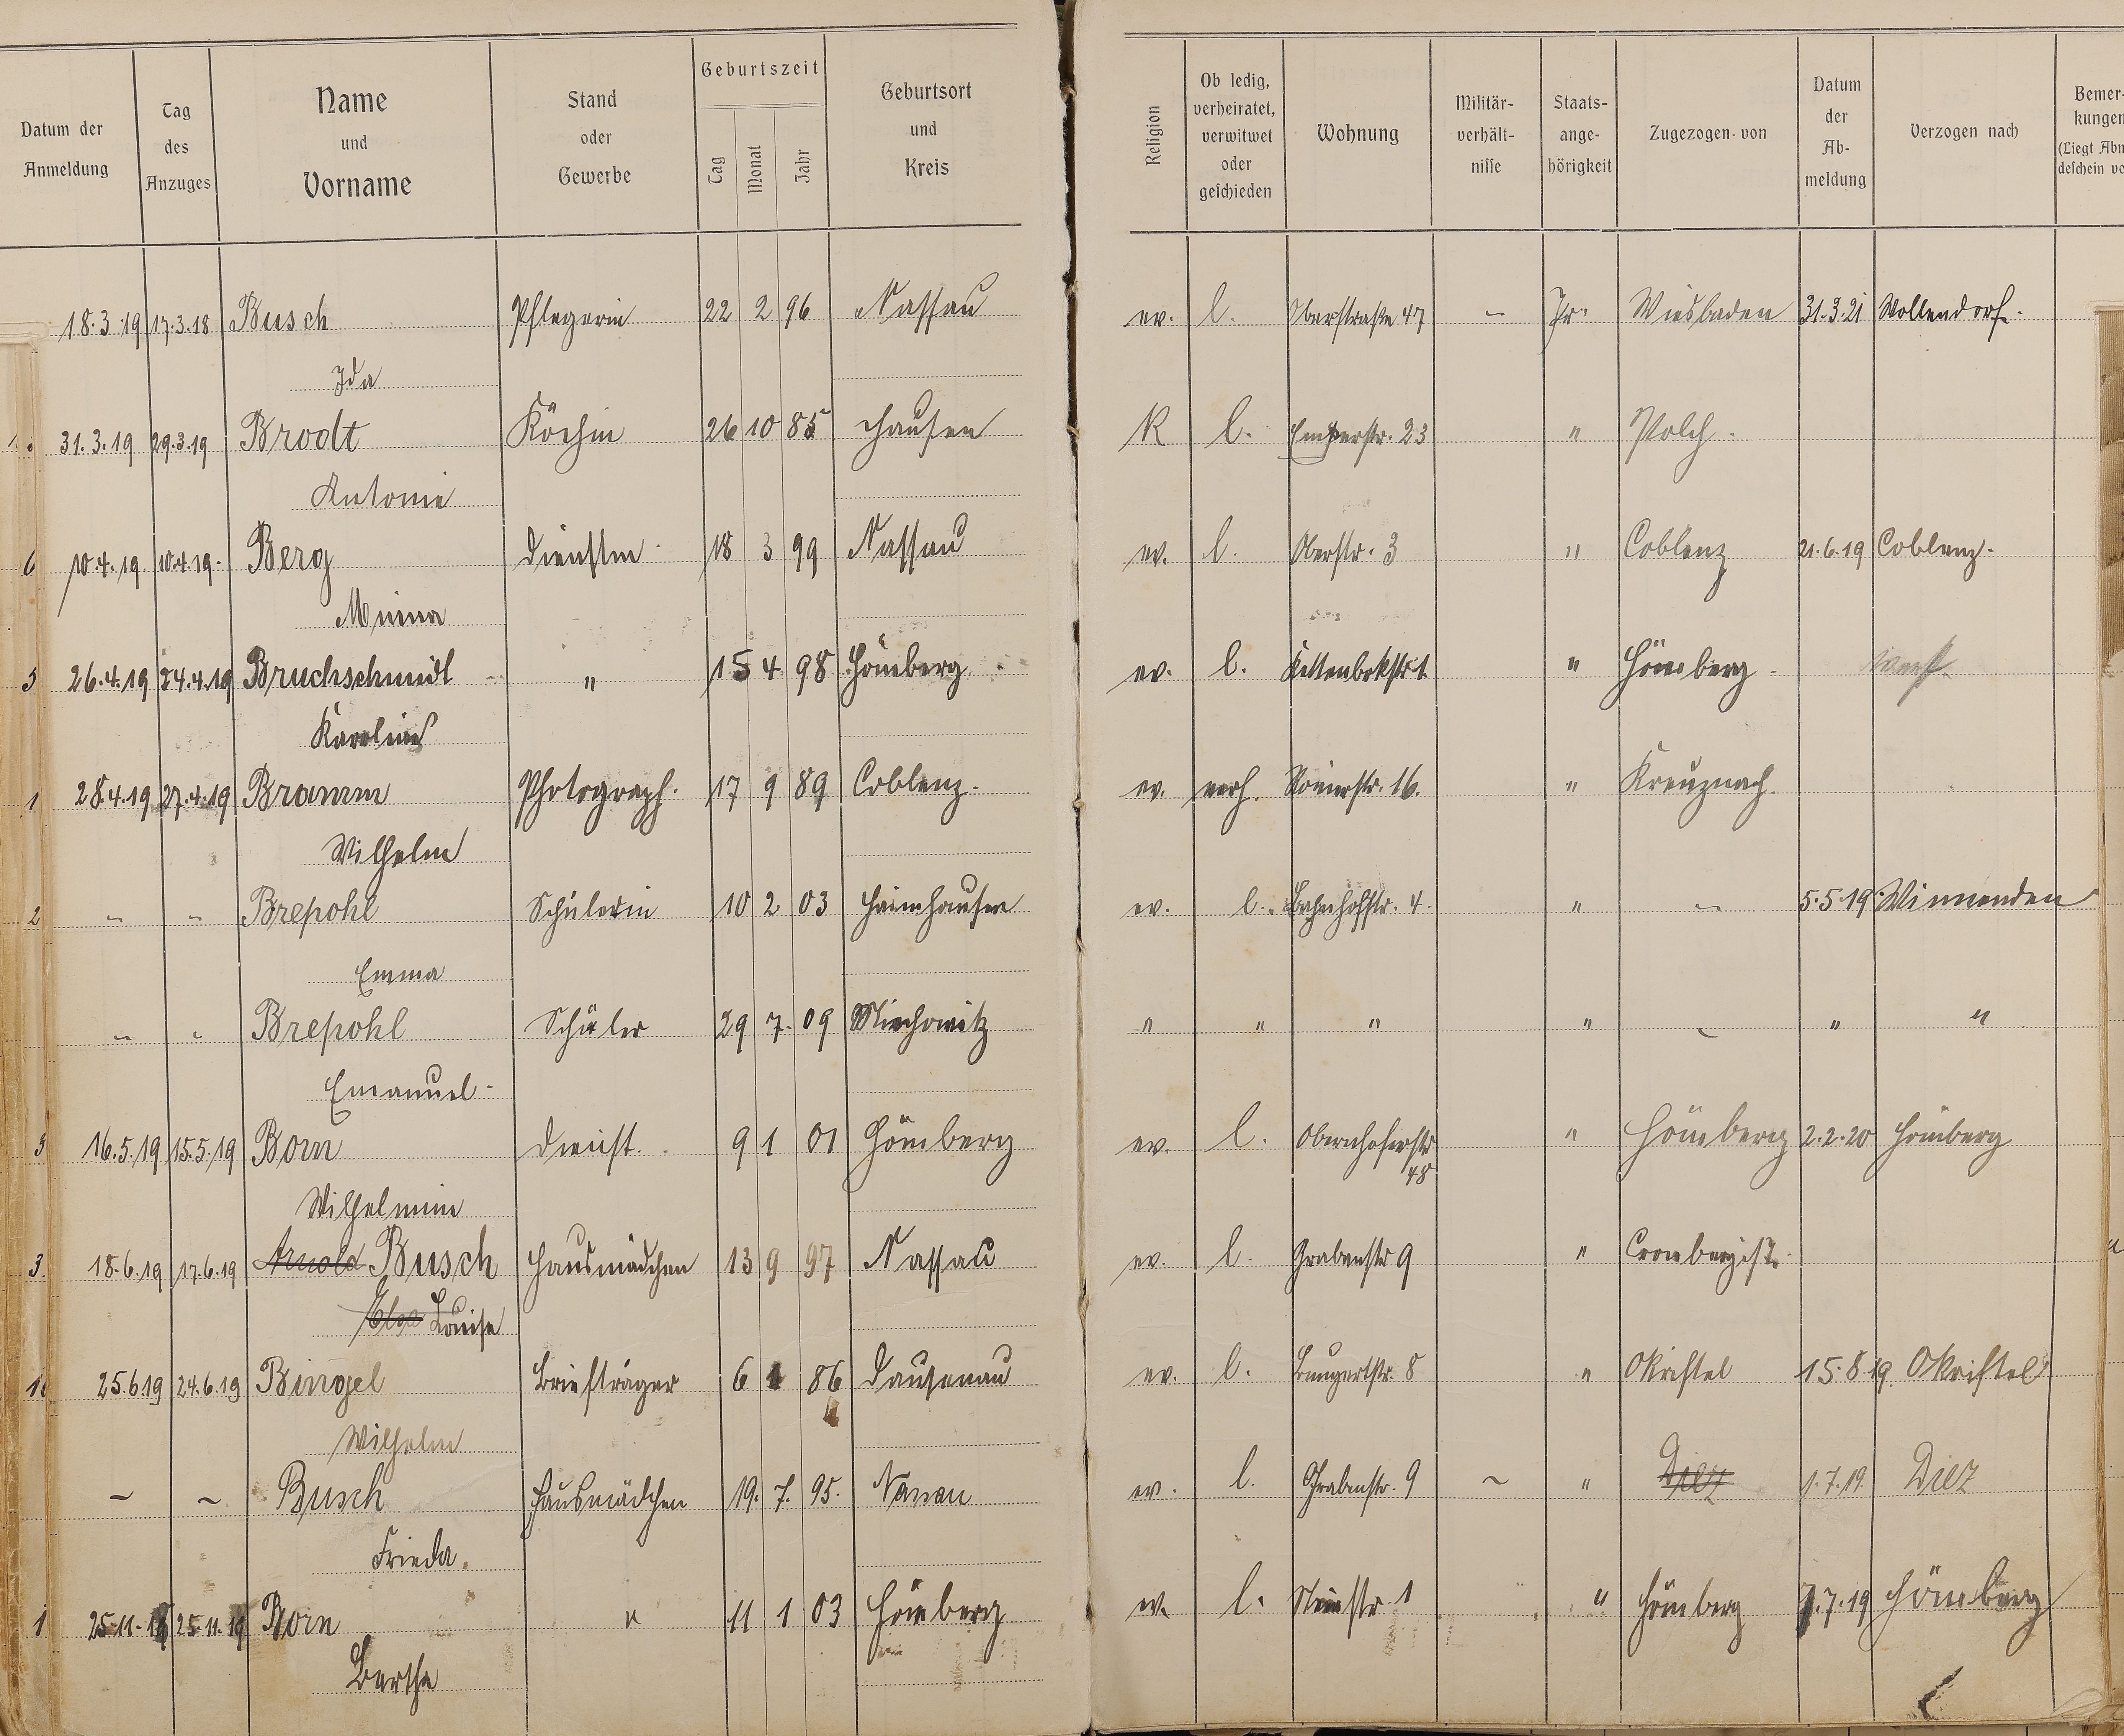 Datum der Anmeldung | Tag des Anzuges | Name und Vorname | Stand oder Gewerbe | Geburtszeit Tag Monat Jahr | Geburtsort und Kreis | Religion | Ob ledig, verheiratet, verwitwet oder geschieden | Wohnung | Militär-verhält-nisse | Staats-ange-hörigkeit | Zugezogen von | Datum der Ab-meldung | Verzogen nach | Bemer-kungen (Liegt Abm deschein vo
18.3.19 17.3.18 Busch Pflegerin 22 2 96 Nassau ev. l. Oberstraße 47 - Pr. Wiesbaden 31.3.21 Wollendorf.
Ida
31.3.19 29.3.19 Brodt Köchin 26 10 85 K l. Emserstr. 23 " Polch.
Antonie
6 10.4.19. 10.4.19. Berg Dienstm. 18 3 99 Nassau ev. l. Oberstr. 3 " Coblenz 21.6.19 Coblenz.
Minna
3 26.4.19 24.4.19 Bruchschmidt " 15 4 98 Hömberg ev. l. Kettenbrkstr 1. " Hömberg
Karoline
1 28.4.19 27.4.19 Bramm Photograph. 17 9 89 Coblenz. ev. verh. Römerstr. 16. " Kreuznach.
Wilhelm
2 " " Brepohl Schülerin 10 2 03 ev. l. Bahnhofstr. 4. " - 5.5.19. Winnenden
Emma
" " Brepohl Schüler 29 7. 09 Miechowitz " " " " - " "
Emanuel
3 16.5.19 15.5.19 Born Dienst. 9 1 01 Hömberg ev. l. Obernhoferstr " Hömberg 2.2.20 Hömberg
48
Wilhelmine
3. 18.6.19 17.6.19 Arnold Busch Hausmädchen 13 9 97 Nassau ev. l. Grabenstr 9 "
Louise
25.6.19 24.6.19 Bingel Briefträger 6 1 86 Dausenau ev. l. Bungertstr. 8 " Okriftel 15.8.19. Okriftel
Wilhelm
- - Busch Hausmädchen 19. 7. 95. Nassau ev. l. Grabenstr. 9 - " Diez 1.7.19. Diez
Frieda.
1 25.11.19 25.11.19 Born " 11 1 03 Hömberg ev. l. 1 " Hömberg 7.7.19 Hömberg
Bertha